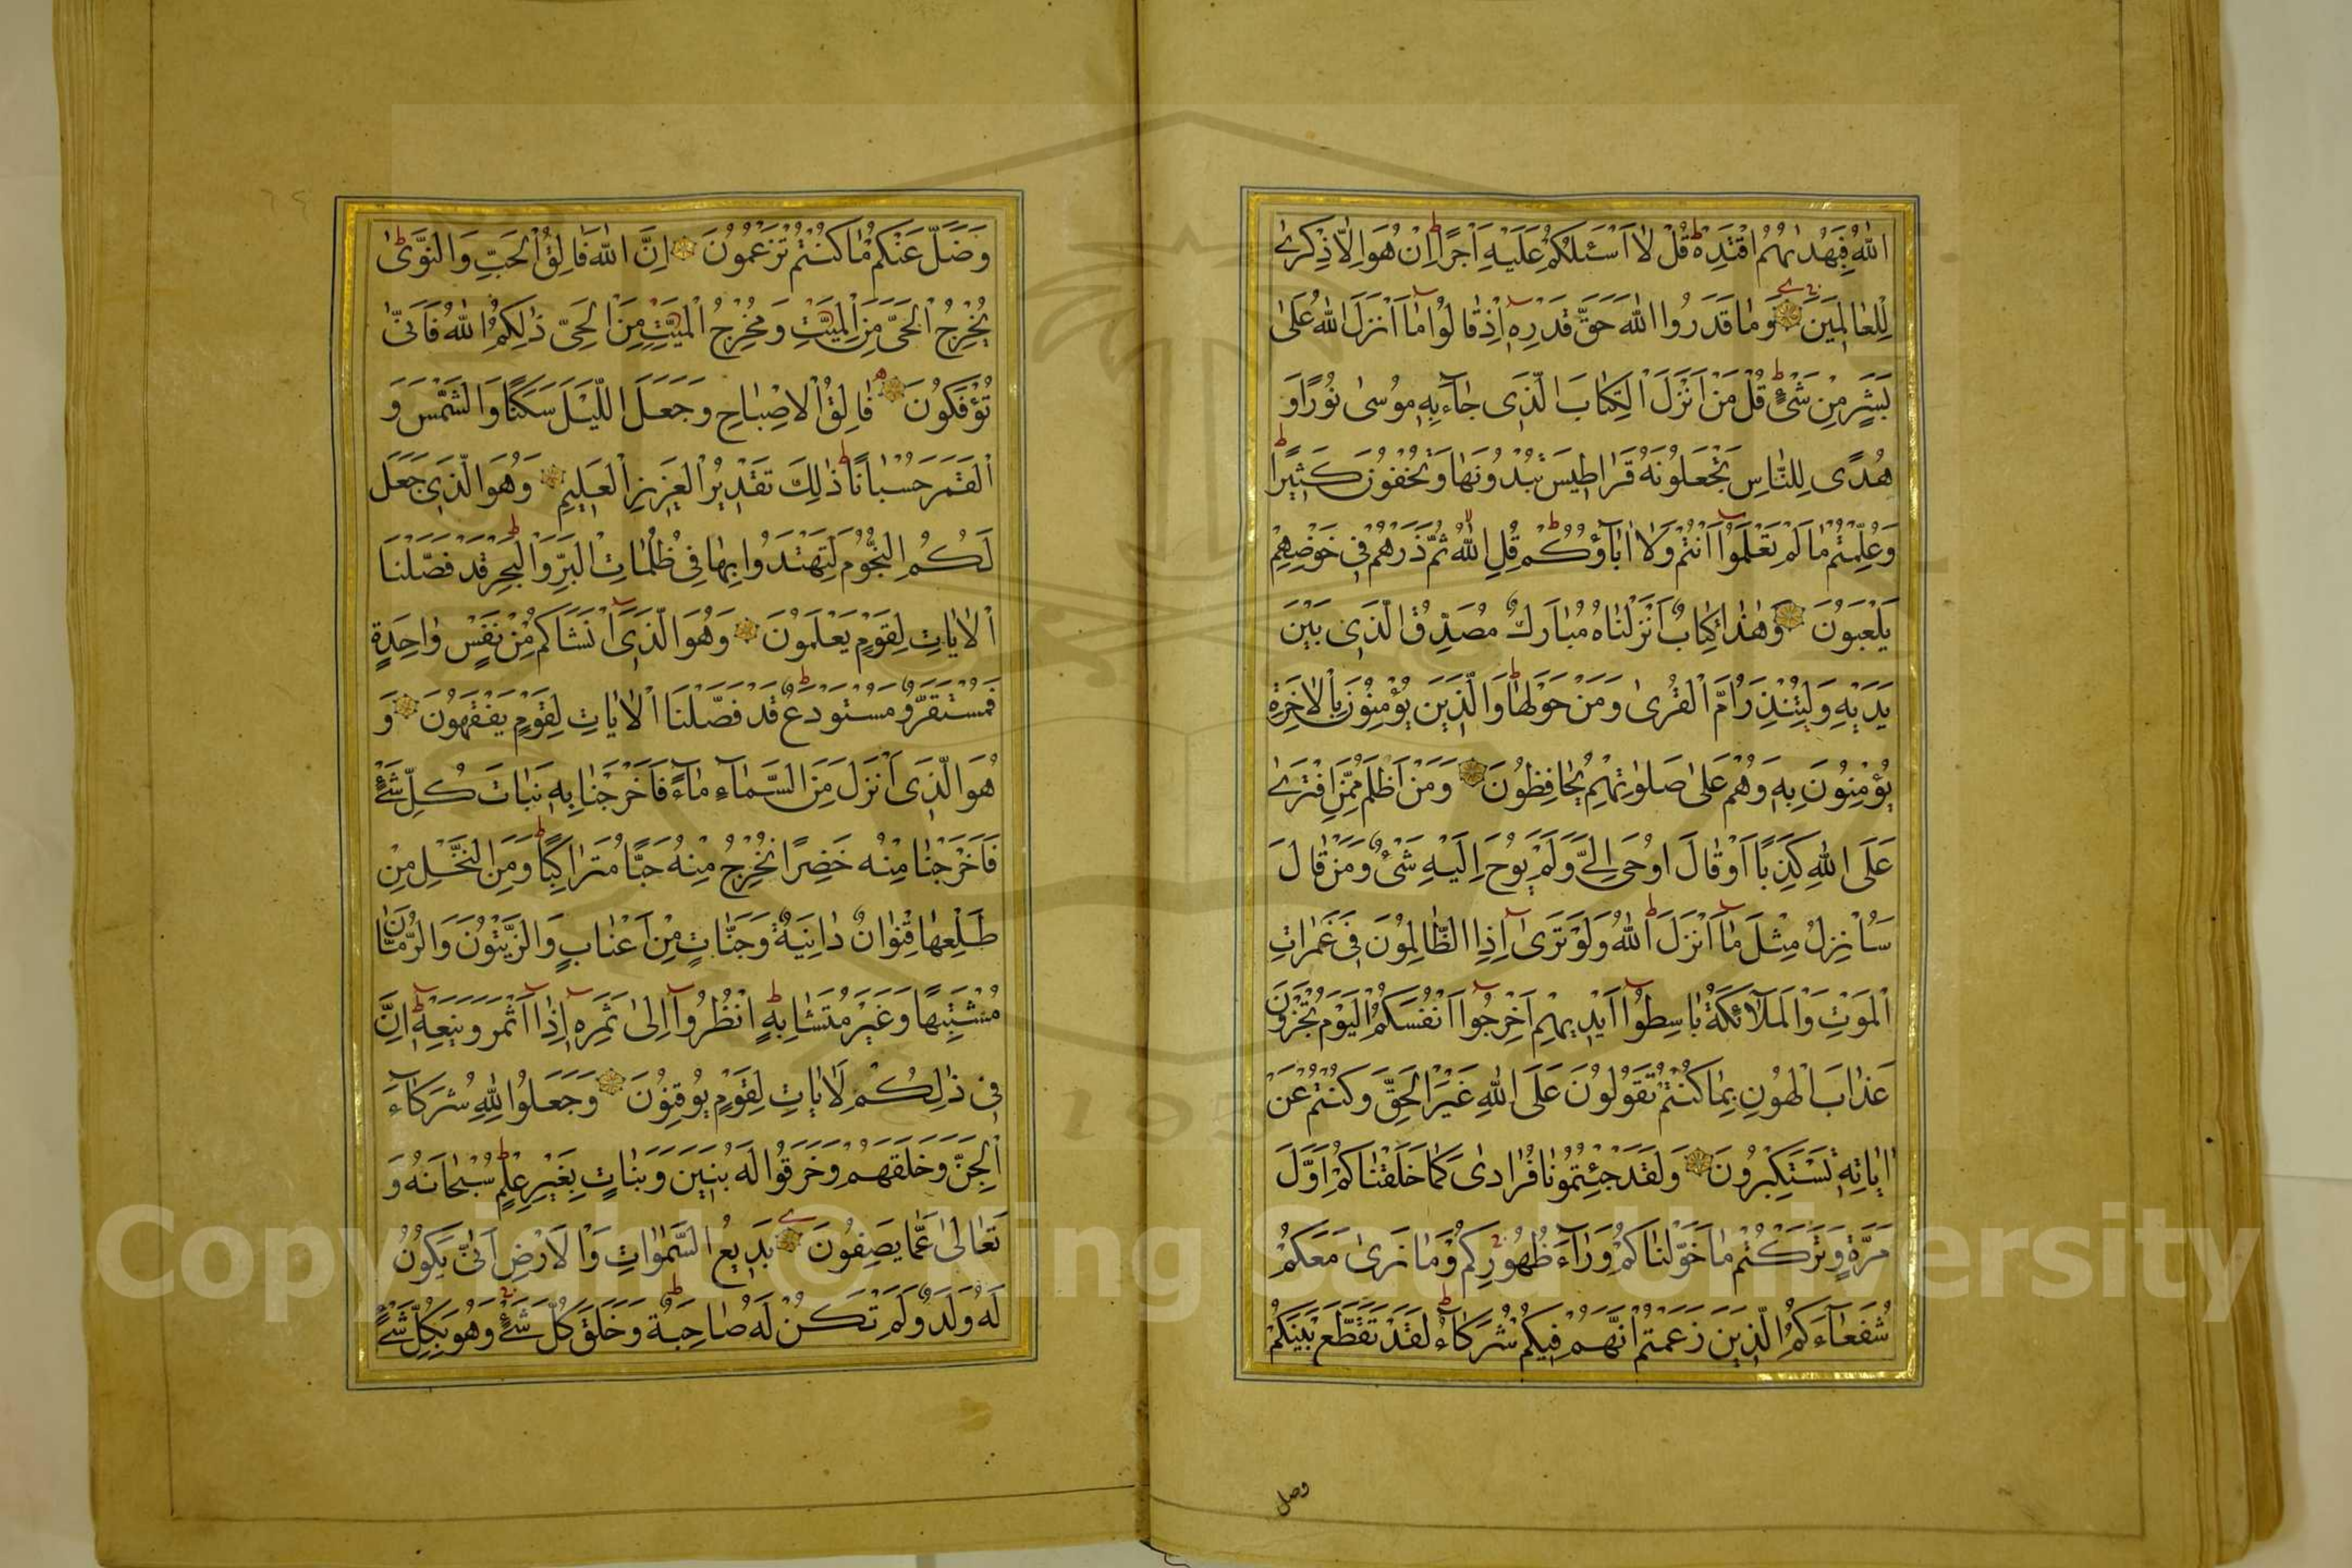 اللهُ فَبِهُدٰيهُمُ اقْتَدِهْ قُلْ لَا اَسْـَٔلُكُمْ عَلَيْهِ اَجْرًا اِنْ هُوَ اِلَّا ذِكْرٰى
لِلْعَالَمِينَ وَمَا قَدَرُوا اللهَ حَقَّ قَدْرِهِ اِذْ قَالُوا مَا اَنْزَلَ اللهُ عَلٰى
بَشَرٍ مِنْ شَىْءٍ قُلْ مَنْ اَنْزَلَ الْكِتَابَ الَّذِى جَاءَ بِهِ مُوسٰى نُورًا وَ
هُدًى لِلنَّاسِ تَجْعَلُونَهُ قَرَاطِيسَ تُبْدُونَهَا وَتُخْفُونَ كَثِيرًا
وَعُلِّمْتُمْ مَا لَمْ تَعْلَمُوا اَنْتُمْ وَلَا اٰبَاؤُكُمْ قُلِ اللهُ ثُمَّ ذَرْهُمْ فِى خَوْضِهِمْ
يَلْعَبُونَ وَهٰذَا كِتَابٌ اَنْزَلْنَاهُ مُبَارَكٌ مُصَدِّقُ الَّذِى بَيْنَ
يَدَيْهِ وَلِتُنْذِرَ اُمَّ الْقُرٰى وَمَنْ حَوْلَهَا وَالَّذِينَ يُؤْمِنُونَ بِالْاٰخِرَةِ
يُؤْمِنُونَ بِهِ وَهُمْ عَلٰى صَلٰوتِهِمْ يُحَافِظُونَ وَمَنْ اَظْلَمُ مِمَّنِ افْتَرٰى
عَلَى اللهِ كَذِبًا اَوْ قَالَ اُوحِىَ اِلَىَّ وَلَمْ يُوحَ اِلَيْهِ شَىْءٌ وَمَنْ قَالَ
سَاُنْزِلُ مِثْلَ مَا اَنْزَلَ اللهُ وَلَوْ تَرٰى اِذِ الظَّالِمُونَ فِى غَمَرَاتِ
الْمَوْتِ وَالْمَلٰٓائِكَةُ بَاسِطُوا اَيْدِيهِمْ اَخْرِجُوا اَنْفُسَكُمُ الْيَوْمَ تُجْزَوْنَ
عَذَابَ الْهُونِ بِمَا كُنْتُمْ تَقُولُونَ عَلَى اللهِ غَيْرَ الْحَقِّ وَكُنْتُمْ عَنْ
اٰيَاتِهِ تَسْتَكْبِرُونَ وَلَقَدْ جِئْتُمُونَا فُرَادٰى كَمَا خَلَقْنَاكُمْ اَوَّلَ
مَرَّةٍ وَتَرَكْتُمْ مَا خَوَّلْنَاكُمْ وَرَاءَ ظُهُورِكُمْ وَمَا نَرٰى مَعَكُمْ
شُفَعَاءَكُمُ الَّذِينَ زَعَمْتُمْ اَنَّهُمْ فِيكُمْ شُرَكَاءُ لَقَدْ تَقَطَّعَ بَيْنَكُمْ
وضل
وَضَلَّ عَنْكُمْ مَا كُنْتُمْ تَزْعُمُونَ اِنَّ اللهَ فَالِقُ الْحَبِّ وَالنَّوٰى
يُخْرِجُ الْحَىَّ مِنَ الْمَيِّتِ وَمُخْرِجُ الْمَيِّتِ مِنَ الْحَىِّ ذٰلِكُمُ اللهُ فَاَنّٰى
تُؤْفَكُونَ فَالِقُ الْاِصْبَاحِ وَجَعَلَ اللَّيْلَ سَكَنًا وَالشَّمْسَ وَ
الْقَمَرَ حُسْبَانًا ذٰلِكَ تَقْدِيرُ الْعَزِيزِ الْعَلِيمِ وَهُوَ الَّذِى جَعَلَ
لَكُمُ النُّجُومَ لِتَهْتَدُوا بِهَا فِى ظُلُمَاتِ الْبَرِّ وَالْبَحْرِ قَدْ فَصَّلْنَا
الْاٰيَاتِ لِقَوْمٍ يَعْلَمُونَ وَهُوَ الَّذِى اَنْشَاَكُمْ مِنْ نَفْسٍ وَاحِدَةٍ
فَمُسْتَقَرٌّ وَمُسْتَوْدَعٌ قَدْ فَصَّلْنَا الْاٰيَاتِ لِقَوْمٍ يَفْقَهُونَ وَ
هُوَ الَّذِى اَنْزَلَ مِنَ السَّمَاءِ مَاءً فَاَخْرَجْنَا بِهِ نَبَاتَ كُلِّ شَىْءٍ
فَاَخْرَجْنَا مِنْهُ خَضِرًا نُخْرِجُ مِنْهُ حَبًّا مُتَرَاكِبًا وَمِنَ النَّخْلِ مِنْ
طَلْعِهَا قِنْوَانٌ دَانِيَةٌ وَجَنَّاتٍ مِنْ اَعْنَابٍ وَالزَّيْتُونَ وَالرُّمَّانَ
مُشْتَبِهًا وَغَيْرَ مُتَشَابِهٍ اُنْظُرُوا اِلٰى ثَمَرِهِ اِذَا اَثْمَرَ وَيَنْعِهِ اِنَّ
فِى ذٰلِكُمْ لَاٰيَاتٍ لِقَوْمٍ يُوقِنُونَ وَجَعَلُوا لِلّٰهِ شُرَكَاءَ
الْجِنَّ وَخَلَقَهُمْ وَخَرَقُوا لَهُ بَنِينَ وَبَنَاتٍ بِغَيْرِ عِلْمٍ سُبْحَانَهُ وَ
تَعَالٰى عَمَّا يَصِفُونَ بَدِيعُ السَّمٰوَاتِ وَالْاَرْضِ اَنّٰى يَكُونُ
لَهُ وَلَدٌ وَلَمْ تَكُنْ لَهُ صَاحِبَةٌ وَخَلَقَ كُلَّ شَىْءٍ وَهُوَ بِكُلِّ شَىْءٍ
Copyright © King Saud University
1957